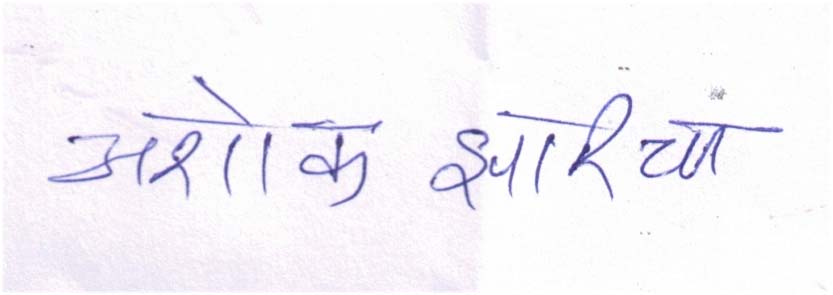 अशोक झारिया